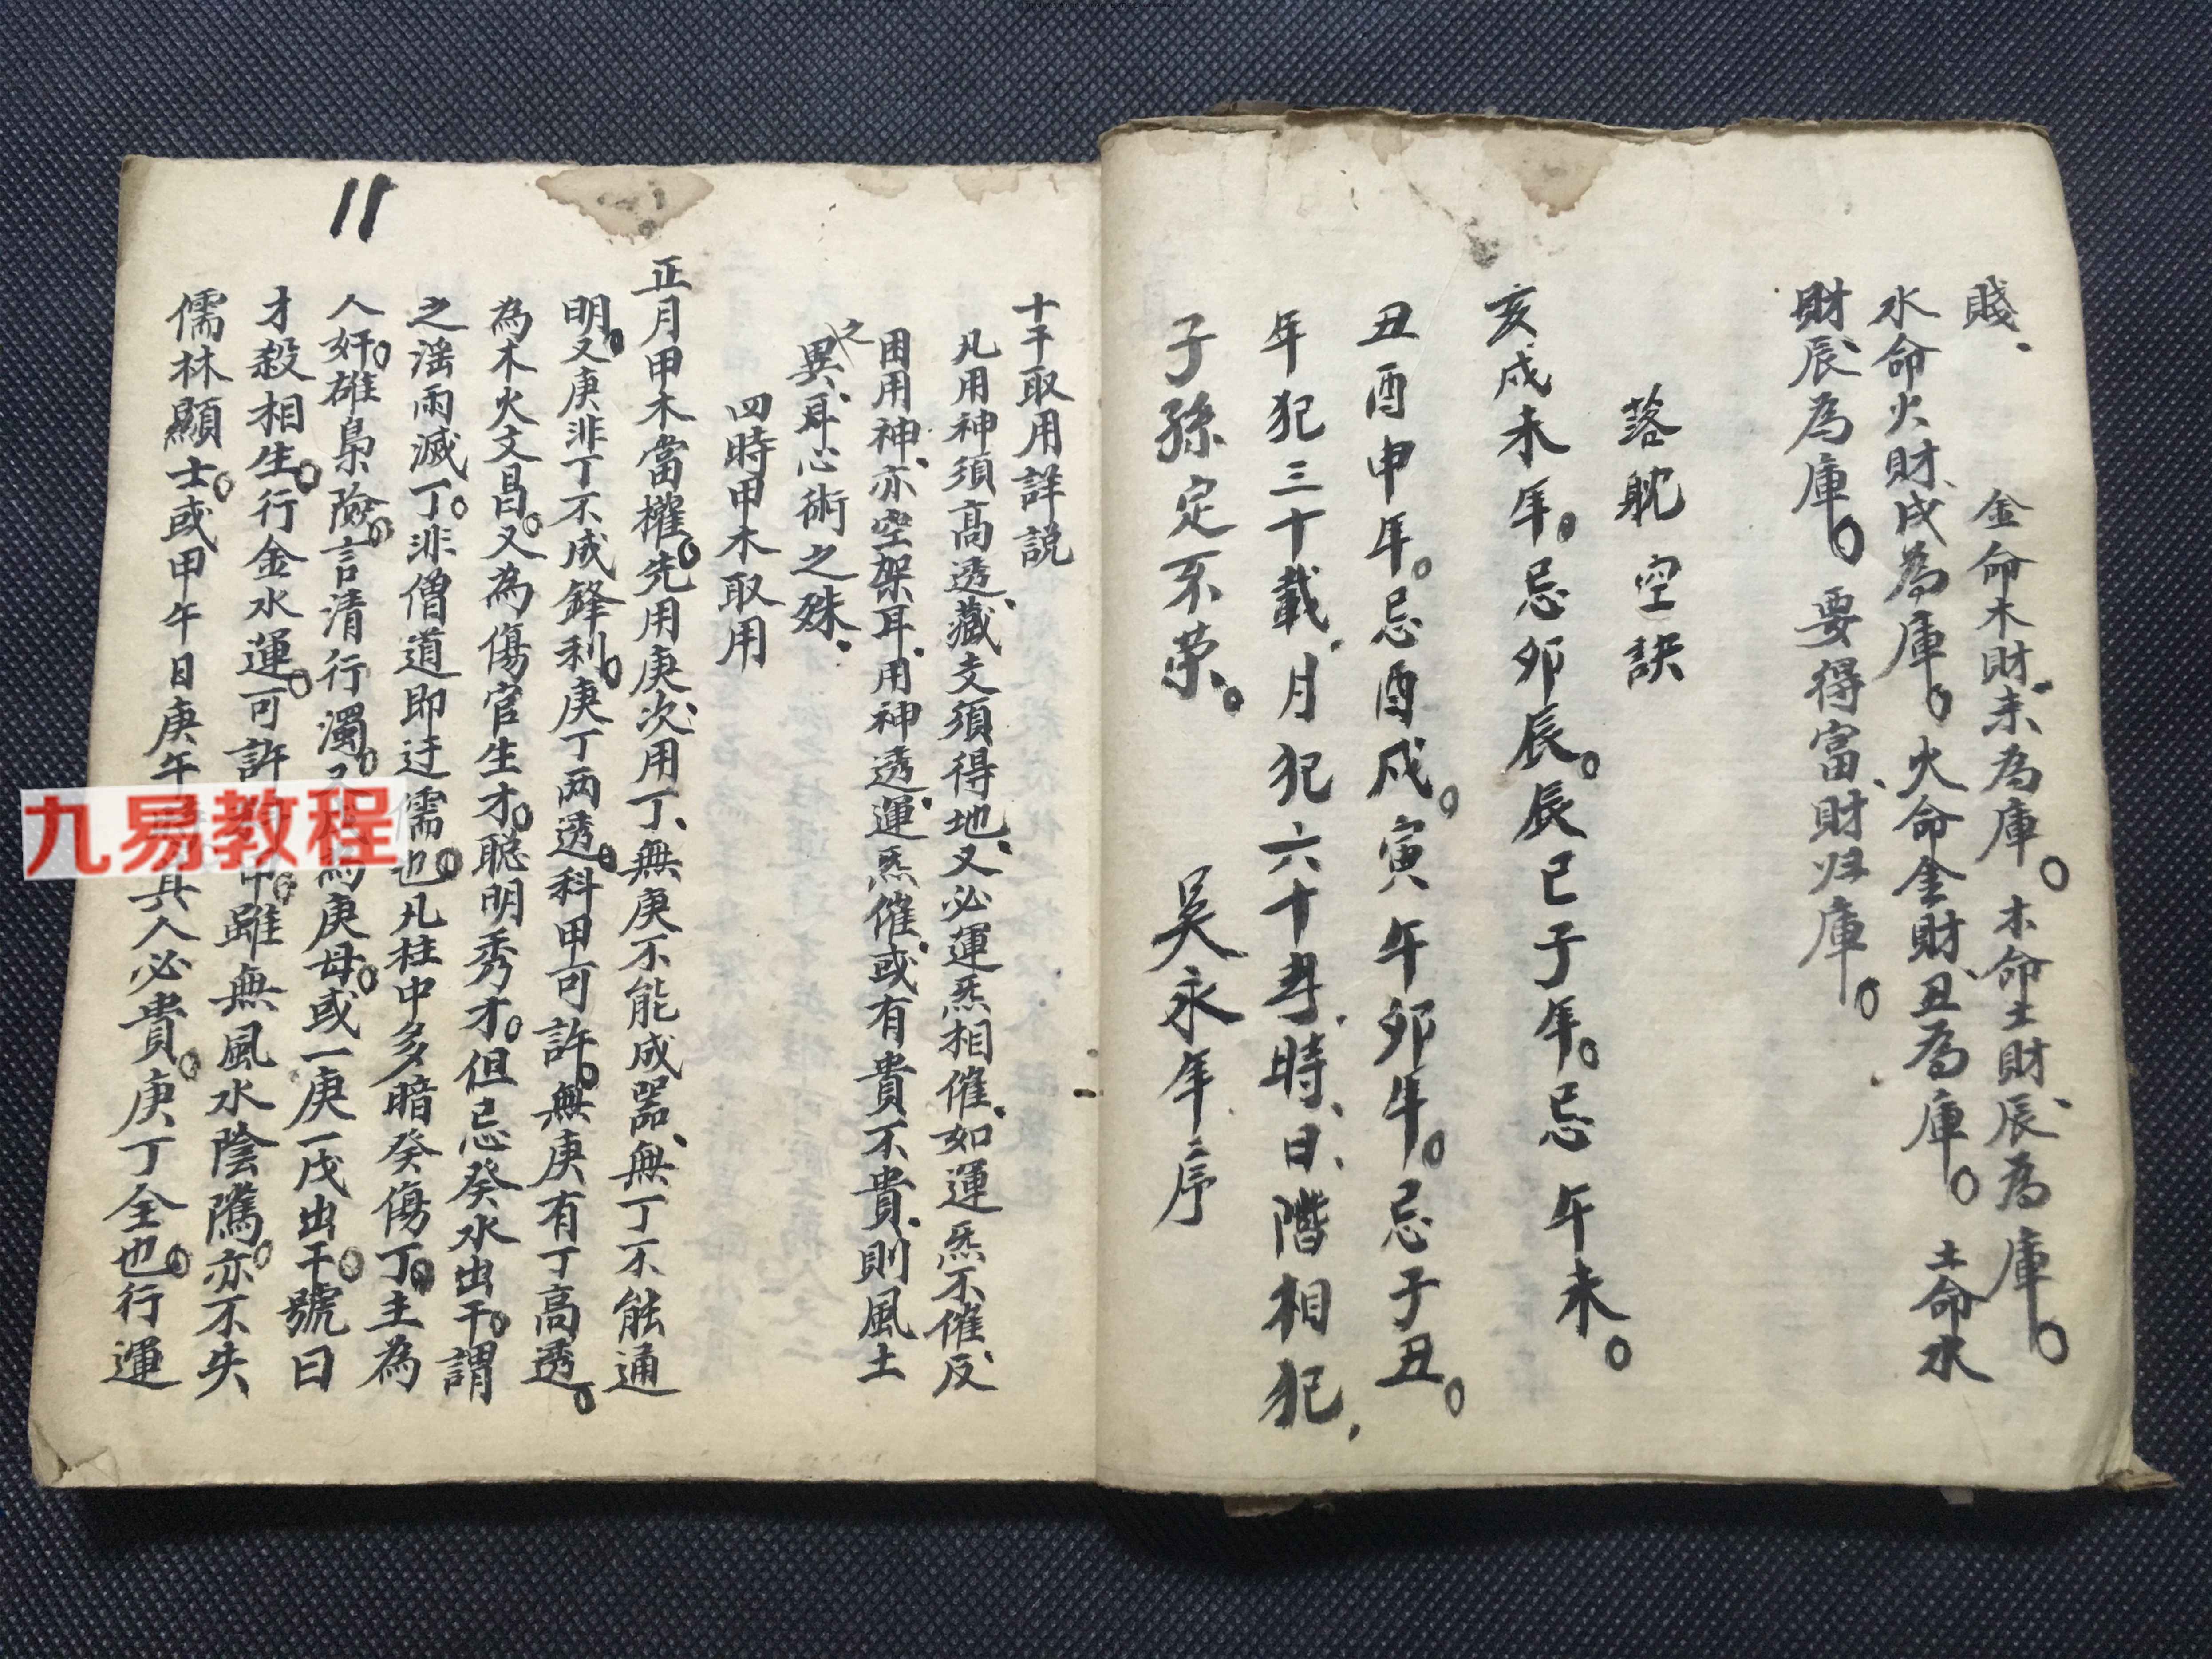 賤、
金命木財、未為庫。木命土財、辰為庫。
水命火財、戌為庫。火命金財、丑為庫。土命水
財、辰為庫。要得富、財归庫。
落躭空訣
亥戌未年。忌卯辰。辰巳子年。忌午未。
丑酉申年。忌酉戌。寅午卯年。忌子丑。
年犯三十載、月犯六十寿、時、日、階相犯、
子孫定不荣。
吴永年序
11
十干取用詳説
凡用神須高透、藏支須得地、又必運炁相催、如運炁不催、反
困用神、亦空架耳、用神透、運炁催、或有貴不貴、則風土
之異、耳心術之殊、
四時甲木取用
正月甲木當權。先用庚、次用丁、無庚不能成器、無丁不能通
明。又庚非丁不成鋒利。庚丁两透。科甲可許。無庚有丁高透。
為木火文昌。又為傷官生才。聪明秀才。但忌癸水出干。謂
之滛雨滅丁。非僧道即迂儒也。凡柱中多暗癸傷丁。主為
人奸。雄梟險。言清行濁。為庚母。或一庚一戊出干。號曰
才殺相生。行金水運。可許中。雖無風水陰隲。亦不失、
儒林顯士。或甲午日庚午其人必貴。庚丁全也。行運
九易教程